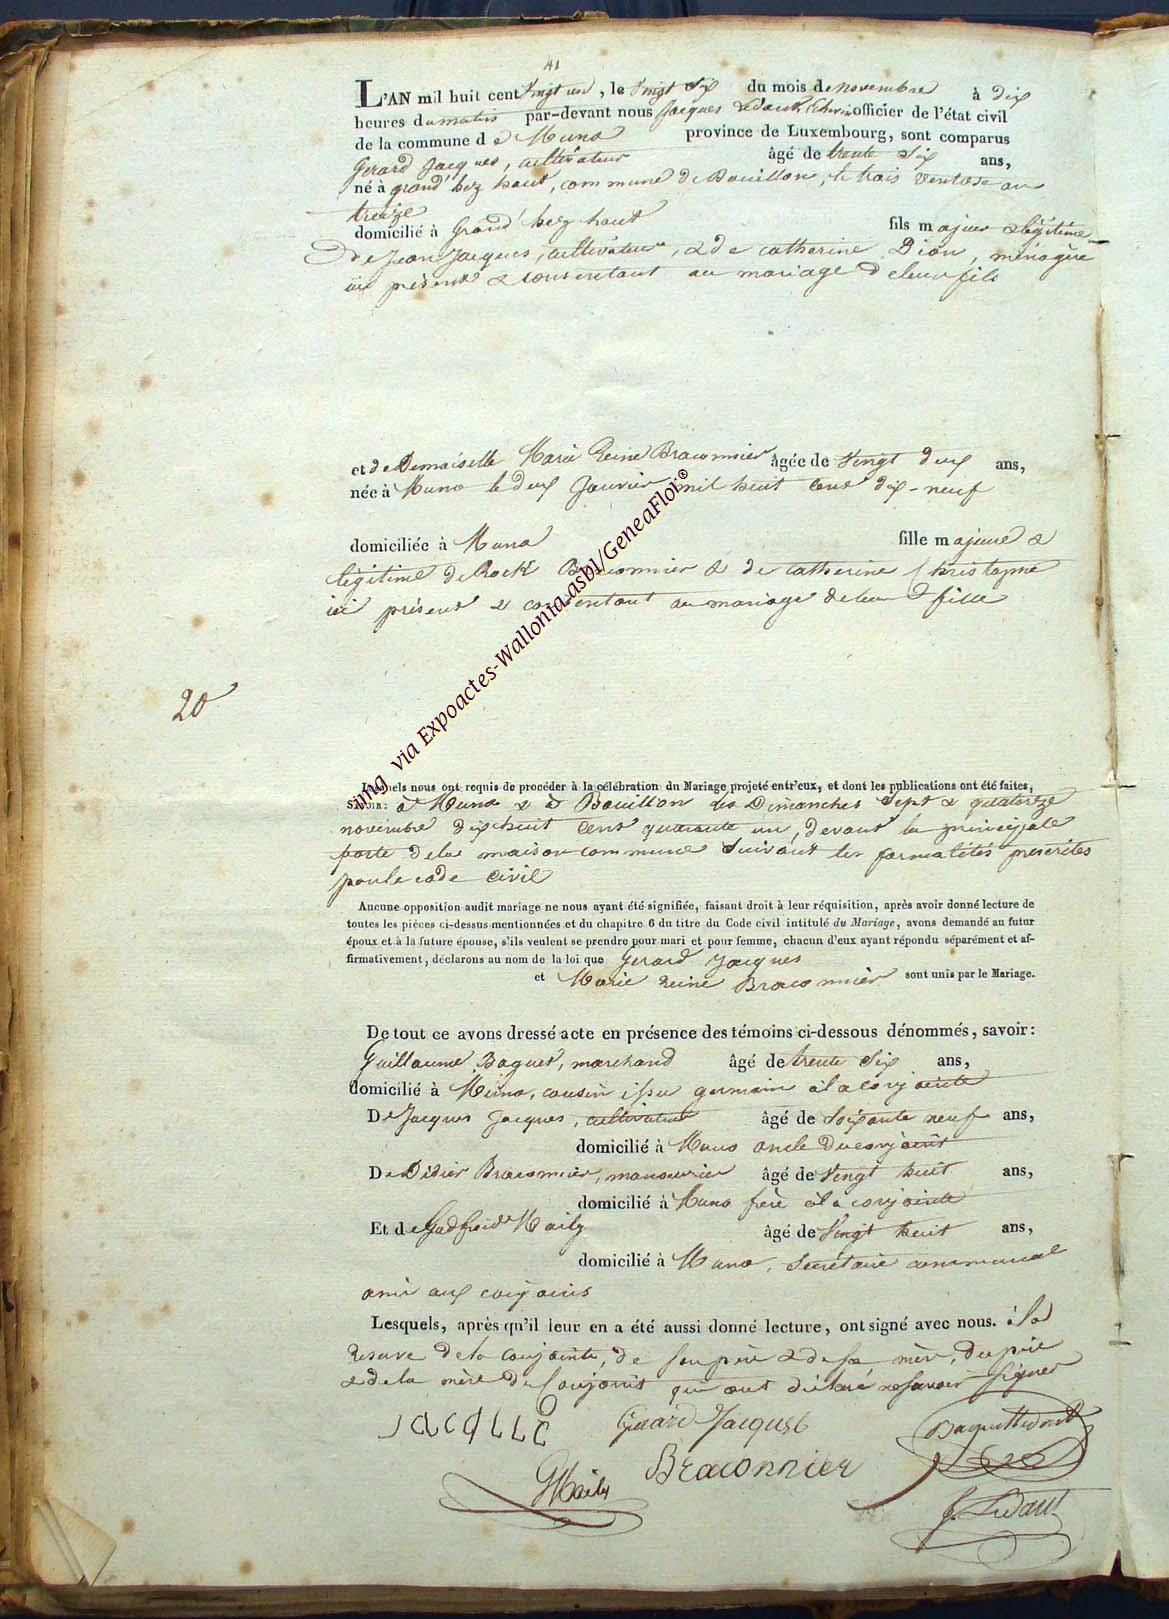 41
L'AN mil huit cent vingt un, le vingt six du mois de novembre à dix
heures du matin par-devant nous Jacques Ledant, Echevin officier de l'état civil
de la commune de Muno province de Luxembourg, sont comparus
Gerard Jacques, cultivateur âgé de trente six ans,
né à grand' hez haut, commune de Bouillon, le trois ventose an
treize
domicilié à Grand' hez haut fils majeur & légitime
De Jean Jacques, cultivateur, & de catherine Dion, ménagère
ici présens & consentant au mariage de leur fils
et de Demaiselle Marie Reine Braconnier âgée de vingt deux ans,
née à Muno le deux Janvier mil huit cent dix-neuf
domiciliée à Muno fille majeure &
légitime de Rock Braconnier & de catherine Christophe
ici présens & consentant au mariage de leur fille
20
Lesquels nous ont requis de procéder à la célébration du Mariage projeté entr'eux, et dont les publications ont été faites,
SAVOIR: à Muno & à Bouillon les Dimanches sept & quatorze
novembre dix huit cent quarante un, devant la principale
porte de la maison commune suivant les formalités prescrites
par le code civil
Aucune opposition audit mariage ne nous ayant été signifiée, faisant droit à leur réquisition, après avoir donné lecture de
toutes les pièces ci-dessus mentionnées et du chapitre 6 du titre du Code civil intitulé du Mariage, avons demandé au futur
époux et à la future épouse, s'ils veulent se prendre pour mari et pour femme, chacun d'eux ayant répondu séparément et af-
firmativement, déclarons au nom de la loi que Gerard Jacques
et Marie Reine Braconnier sont unis par le Mariage.
De tout ce avons dressé acte en présence des témoins ci-dessous dénommés, savoir:
Guillaume Baquet, marchand âgé de trente six ans,
domicilié à Muno, cousin issu germain à la conjointe
De Jacques Jacques, cultivateur âgé de soixante neuf ans,
domicilié à Muno oncle du conjoint
De Didier Braconnier, manouvrier âgé de vingt huit ans,
domicilié à Muno frère à la conjointe
Et de Godfroid Maily âgé de vingt huit ans,
domicilié à Muno, secrétaire communal
ami aux conjoins
Lesquels, après qu'il leur en a été aussi donné lecture, ont signé avec nous. à la
reserve de la conjointe, de son père & de sa mère, du père
& de la mère du conjoint qui ont déclaré ne savoir signer
Jacque Gerard Jacques Baquet
Braconnier
GMaily
J. Ledant
img via Expoactes-Wallonia.asbl/GeneaFloi©